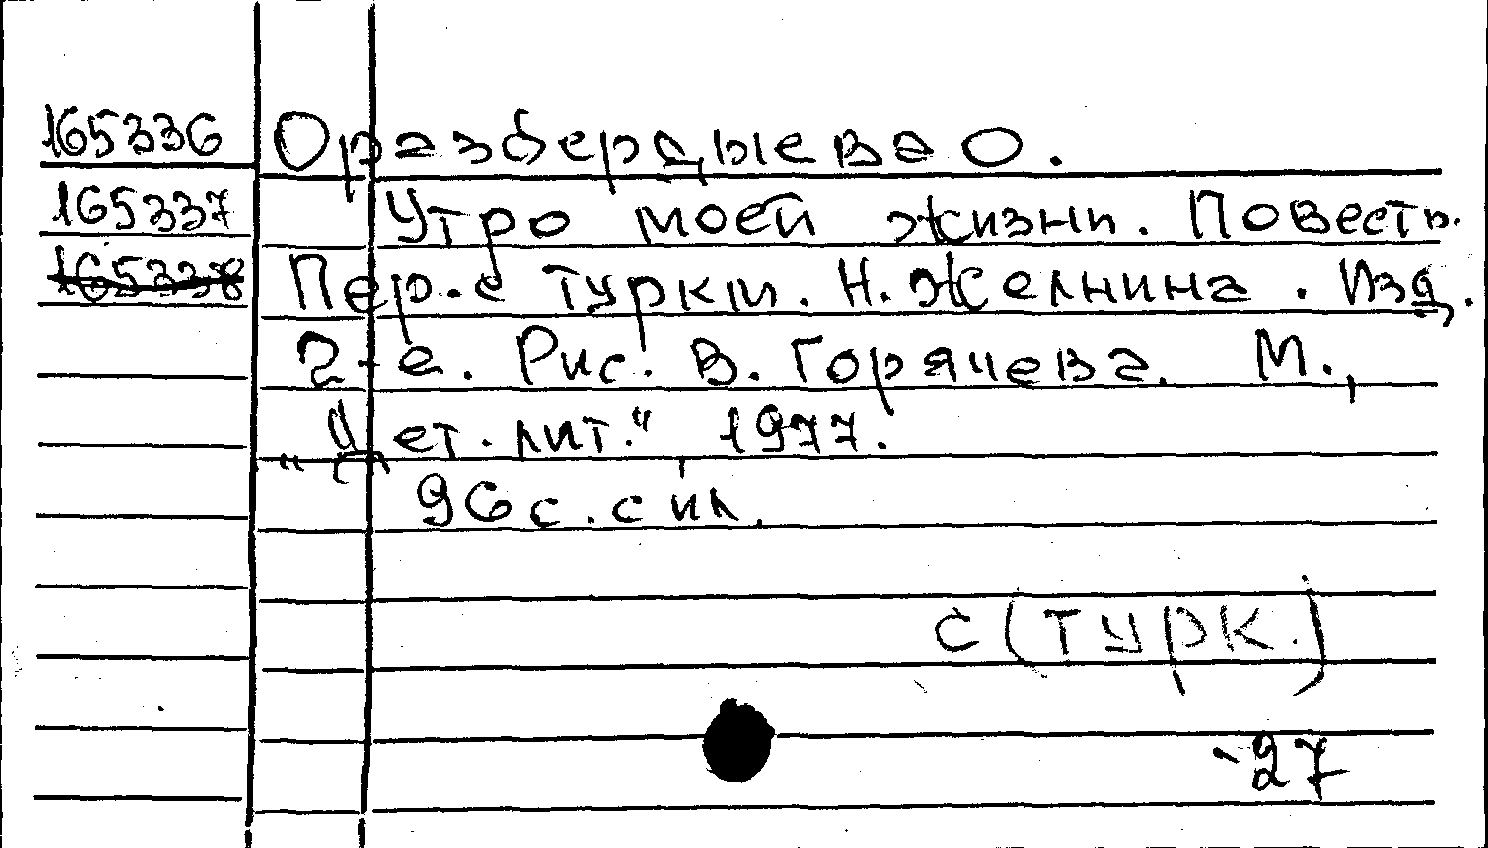 165336 Оразбердыева О.
165337 Утро моей жизни. Повесть.
165338 Пер. с туркм. Н. Желнина. Изд.
2-е. Рис. В. Горячева. М.,
„Дет. лит.“, 1977.
96 с. с ил.
С (турк.)
-27